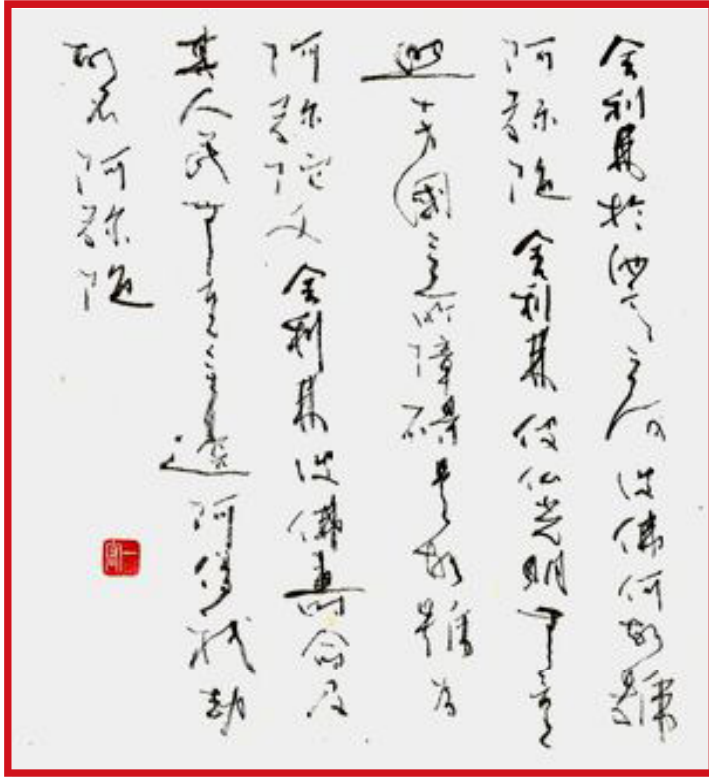 舍利弗於汝意云何彼佛何故號
阿弥陀舍利弗彼仏光明無量
照十方國無所障碍是故號為
阿弥陀又舍利弗彼佛壽命及
其人民無量無邊阿僧祇劫
故名阿弥陀